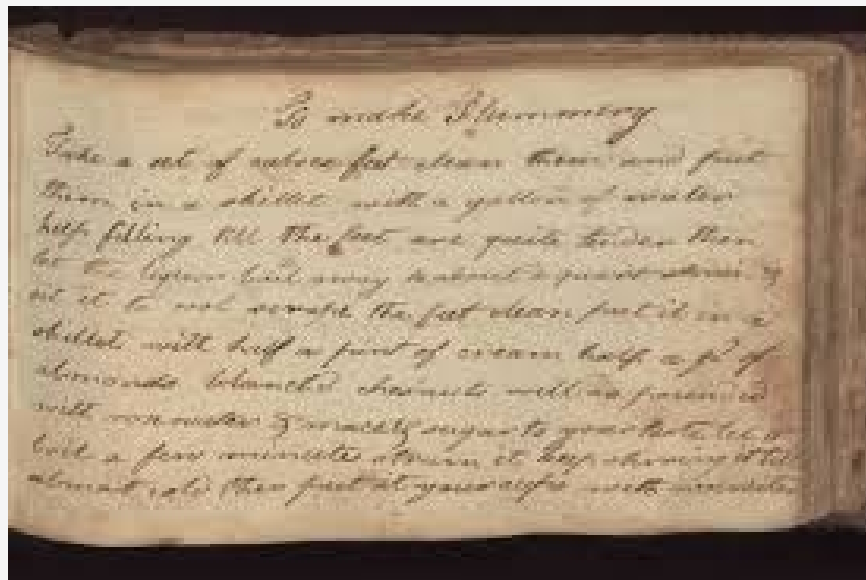 To make Flummery
Take a set of calves feet clean them and put
them in a skillet with a gallon of water
keep filling till the feet are quite tender then
let the liquor boil away to about a quart strain it &
set it to cool scrape the feet clean put it in a
skillet with half a pint of cream half a pd of
almonds blanch'd well pounded
with rosewater & sugar to your taste let it
boil a few minutes strain it keep stirring it till
almost cold then put it your cups with rosewater